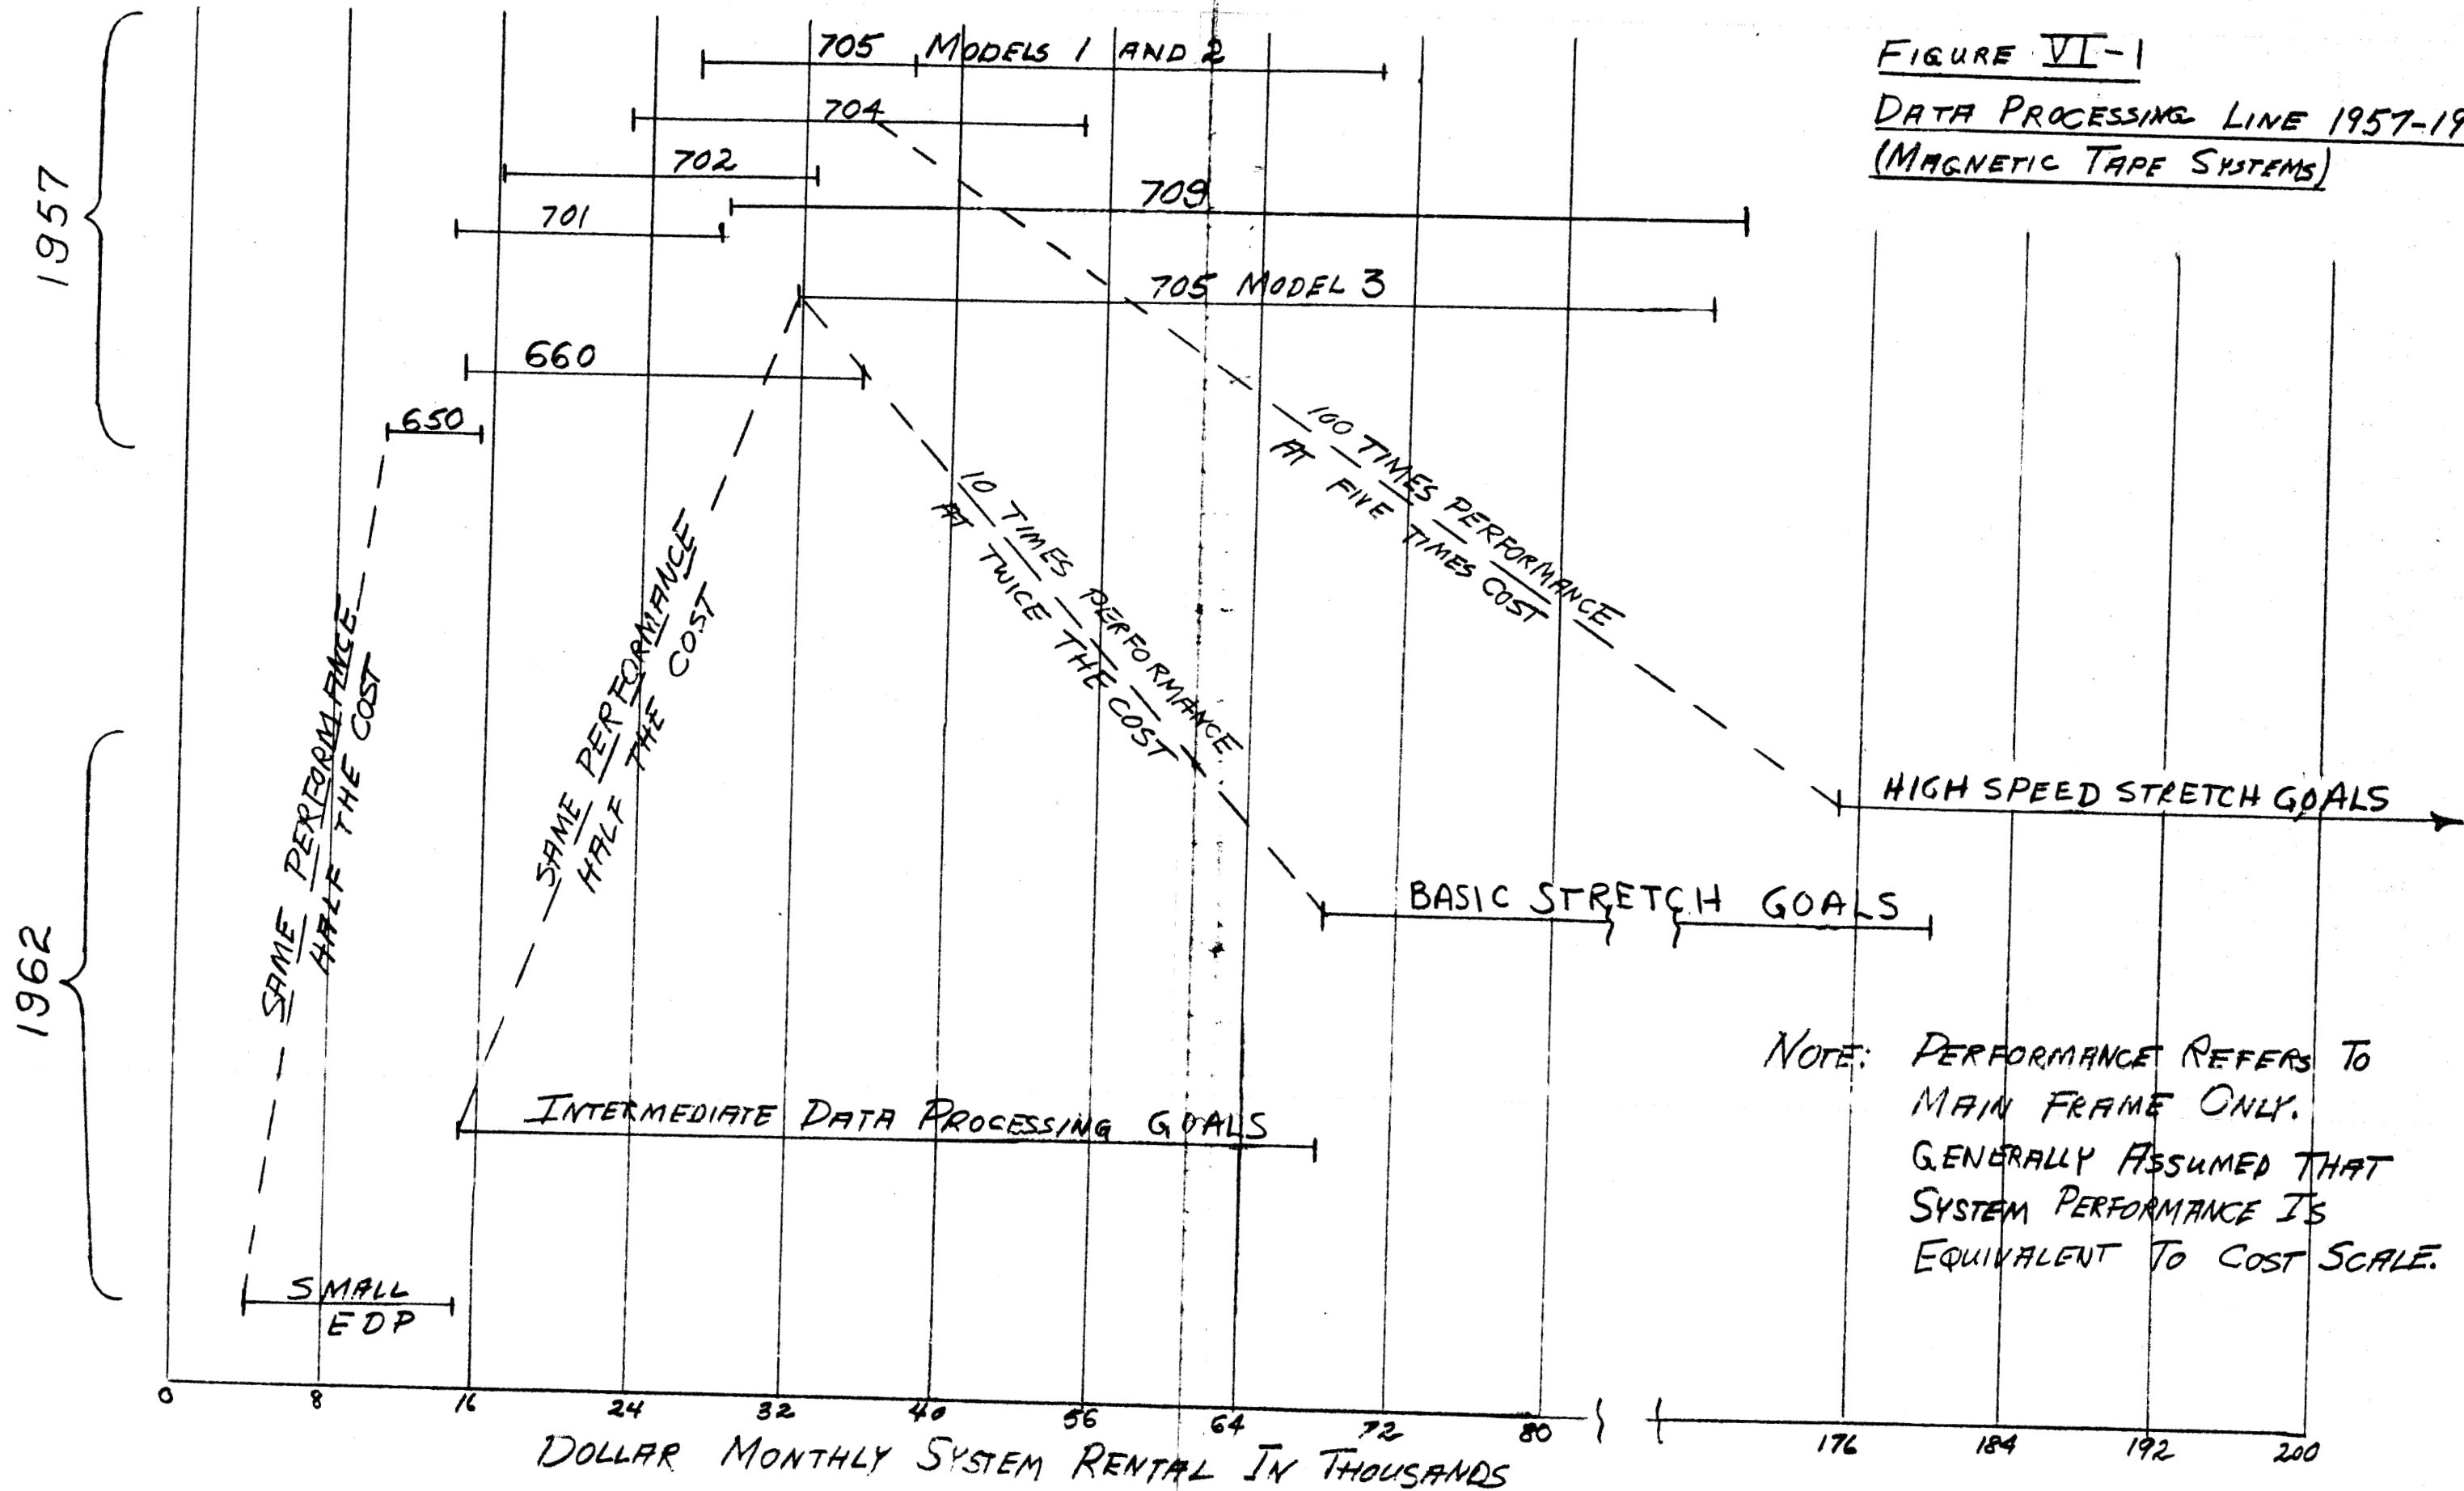 FIGURE VI-1
DATA PROCESSING LINE 1957-19
(MAGNETIC TAPE SYSTEMS)
1957
705 MODELS 1 AND 2
704
702
709
701
705 MODEL 3
660
650
100 TIMES PERFORMANCE
AT FIVE TIMES COST
10 TIMES PERFORMANCE
AT TWICE THE COST
SAME PERFORMANCE
HALF THE COST
SAME PERFORMANCE
HALF THE COST
1962
HIGH SPEED STRETCH GOALS
BASIC STRETCH GOALS
INTERMEDIATE DATA PROCESSING GOALS
SMALL
EDP
NOTE: PERFORMANCE REFERS TO
MAIN FRAME ONLY.
GENERALLY ASSUMED THAT
SYSTEM PERFORMANCE IS
EQUIVALENT TO COST SCALE.
0 8 16 24 32 40 56 64 72 80 176 184 192 200
DOLLAR MONTHLY SYSTEM RENTAL IN THOUSANDS